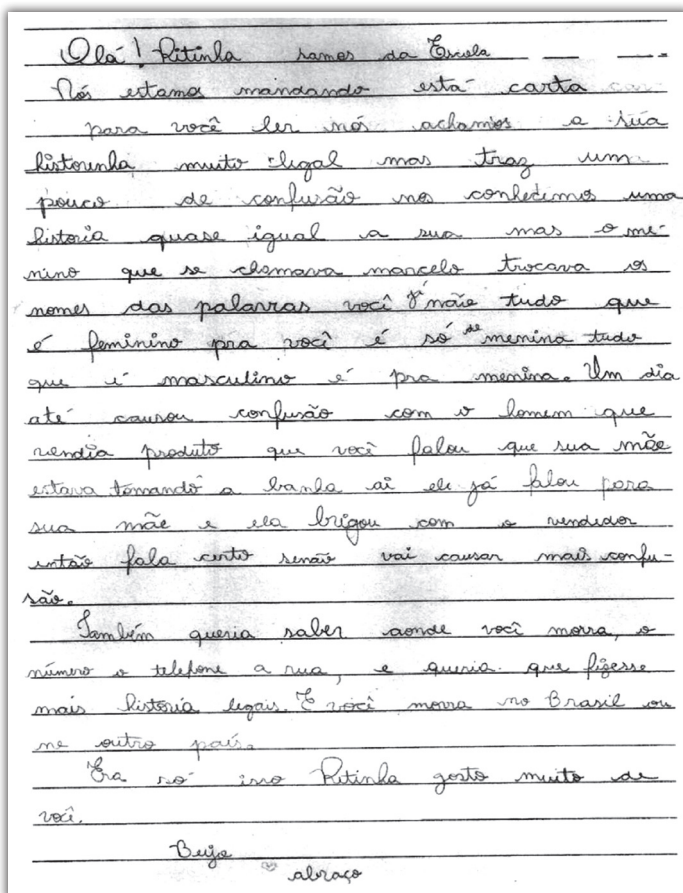 Olá! Ritinha samos da Escola
Nós estamos mandando está carta
para você ler nós achamos a sua
historinha muito legal mas traz um
pouco de confusão nos conhecemos uma
historia quase igual a sua mas o me-
nino que se chemava marcelo trocava os
nomes das palavras você mãe tudo que
é feminino pra você é só de menina tudo
que é masculino é pra menina. Um dia
até causou confusão com o homem que
vendia produto que você falou que sua mãe
estava tomando a banha ai ele já falou para
sua mãe e ela brigou com o vendedor
então fala certo senão vai causar mais confu-
são.
Também queria saber aonde você morra, o
número o telefone a rua, e queria que fizesse
mais historia legais. E você morra no Brasil ou
ne outro país.
Era só isso Ritinha gosto muito de
você.
Beijo
abraço